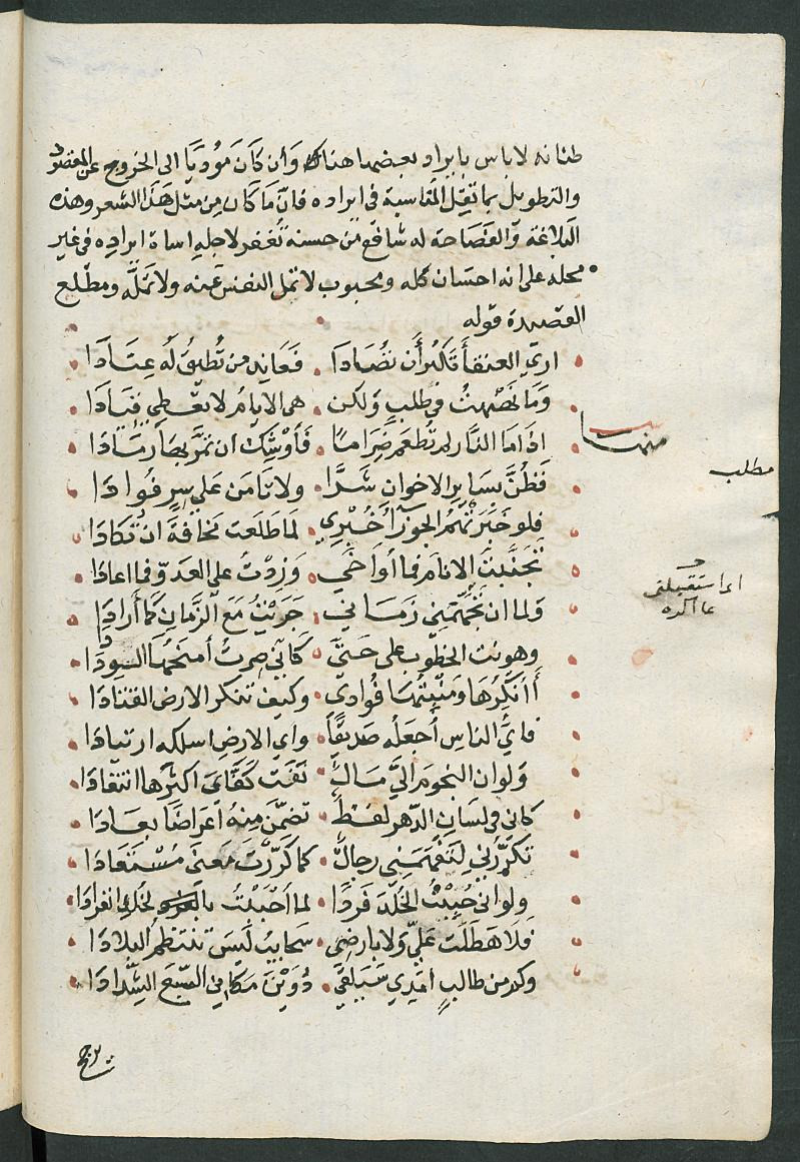 طنانه لا باس بايراد بعضها هناك وان كان موديا الى الخروج عن المقصود
والتطويل بما تقل المناسبة فى ايراده فان ما كان من مثل هذا الشعر وهذه
البلاغة والفصاحة له شافع من حسنه تغفر لاجله اساة ايراده فى غير
محله على انه احسان كله ومحبوب لا تمل النفس عنه ولا تمله ومطلع
القصيدة قوله
ارى العنقا تكبر أن تصادا فعاند من تطيق له عنادا
وما نهنهت فى طلب ولكن هى الايام لا تعطي قيادا
منها
اذا ما النار لم تطعم ضراما فأوشك ان تمر بها رمادا
مطلب
فظن بساير الاخوان شرا ولا تامن على سر فوادا
فلو خبرتهم الجوزا خبري لما طلعت مخافة ان تكادا
تجنبت الانام فما أواخي وزدت على العدو فما اعادا
ولما ان تجهمني زماني جريت مع الزمان كما أرادا
اى استقبلنى
بما اكره
وهونت الخطوب على حتى كانى صرت أمنحها الودادا
أأنكرها ومنبتها فوادي وكيف تنكر الارض القتادا
فاي الناس أجعله صديقا واي الارض اسلكه ارتيادا
ولو ان النجوم الي مال نفت كفاي اكثرها انتقادا
كانى فى لسان الدهر لفظ تضمن منه أعراضا بعادا
تكررني لتفهمني رجال كما كررت معنى مستعادا
ولو انى حبيت الخلد فردا لما أحببت بالخلد انفرادا
فلا هطلت علي ولا بارضي سحايب ليس تنتظم البلادا
وكم من طالب امدي سيلقي دوين مكاني السبع الشدادا